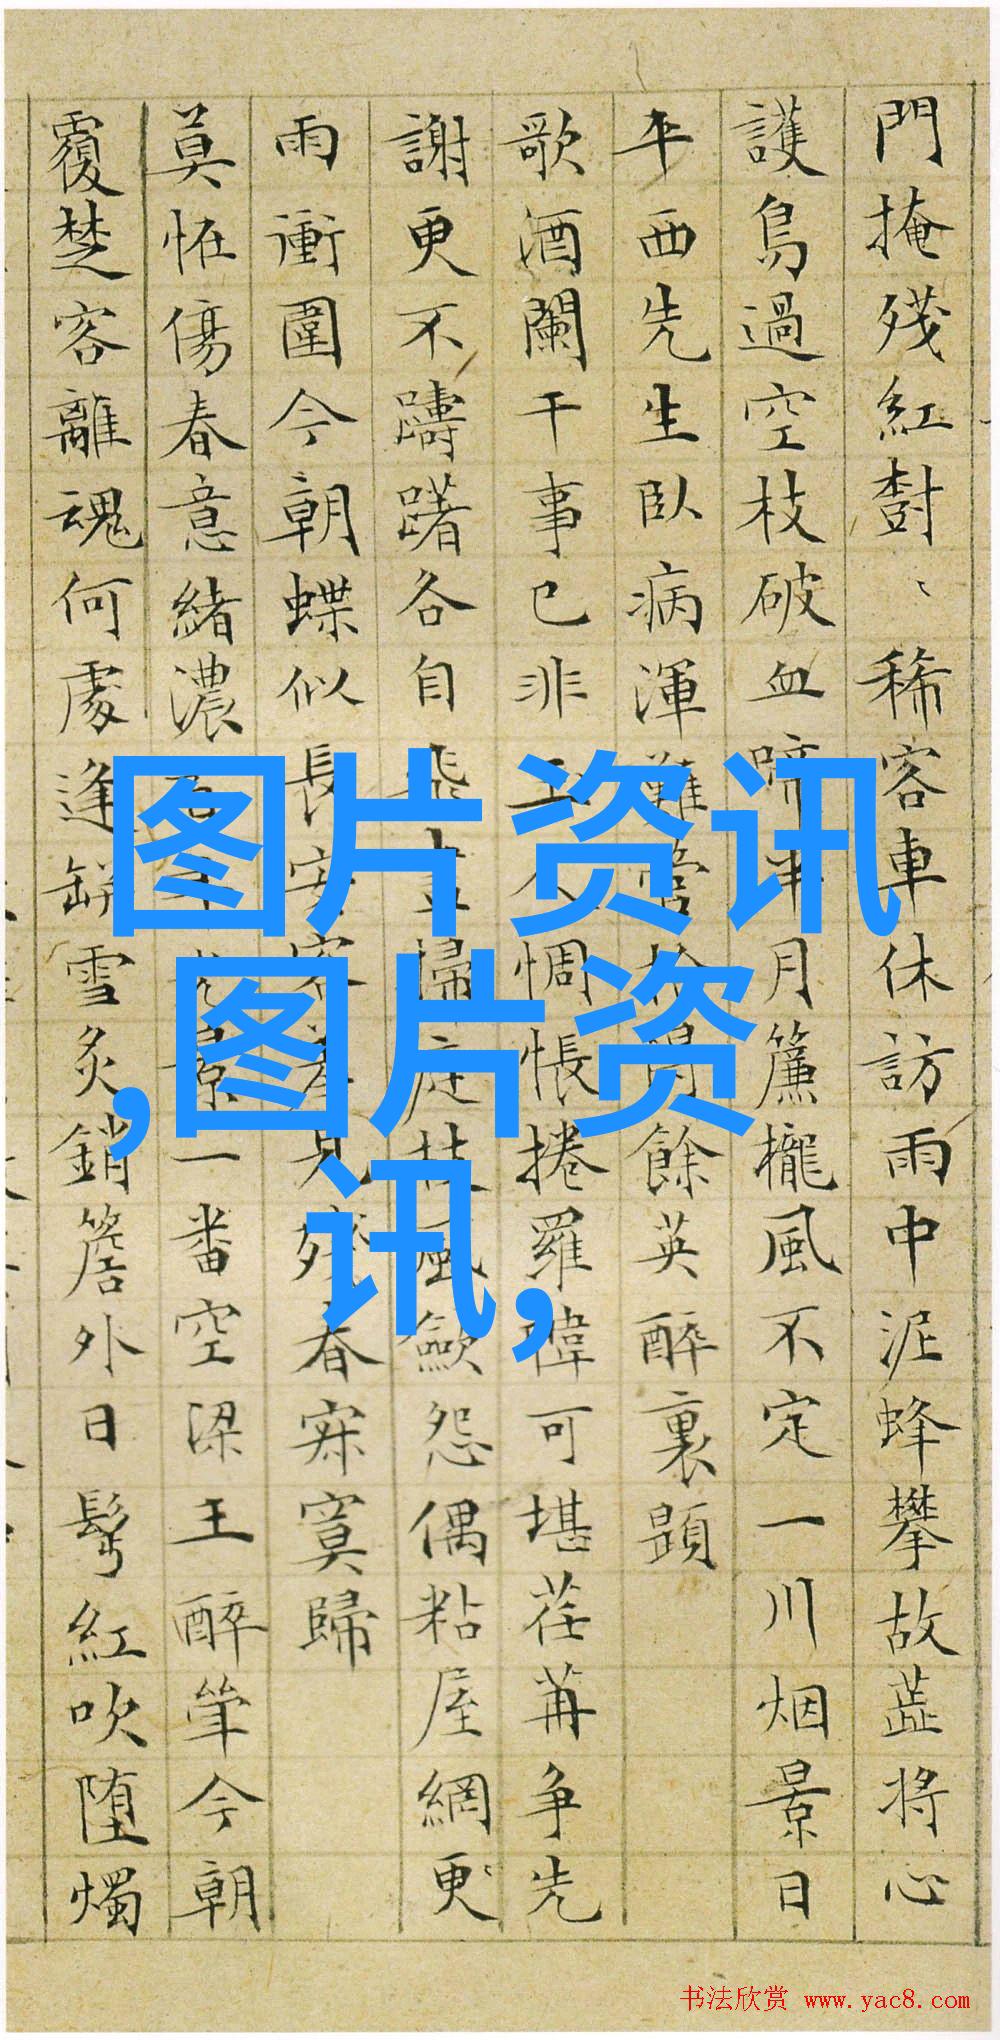 門掩殘紅樹〻稀客車休訪雨中泥蜂攀故蕋將心
護鳥過空枝破血啼半月簾櫳風不定一川烟景日
平西先生臥病渾難管餘英醉裏題
歌酒闌干事已非人惆悵捲羅幃可堪荏苒爭先
謝更不躊躇各自飛掃庭枝風歛怨偶粘屋網更
雨衝圍今朝蝶似長安客羞見殘春寂寞歸
莫恠傷春意緒濃景一番空梁王醉筆今朝
覆楚客離魂何處逢缾雪炙銷簷外日髩紅吹墮燭
图片资讯
,图片资
讯,
书法欣赏 www.yac8.com